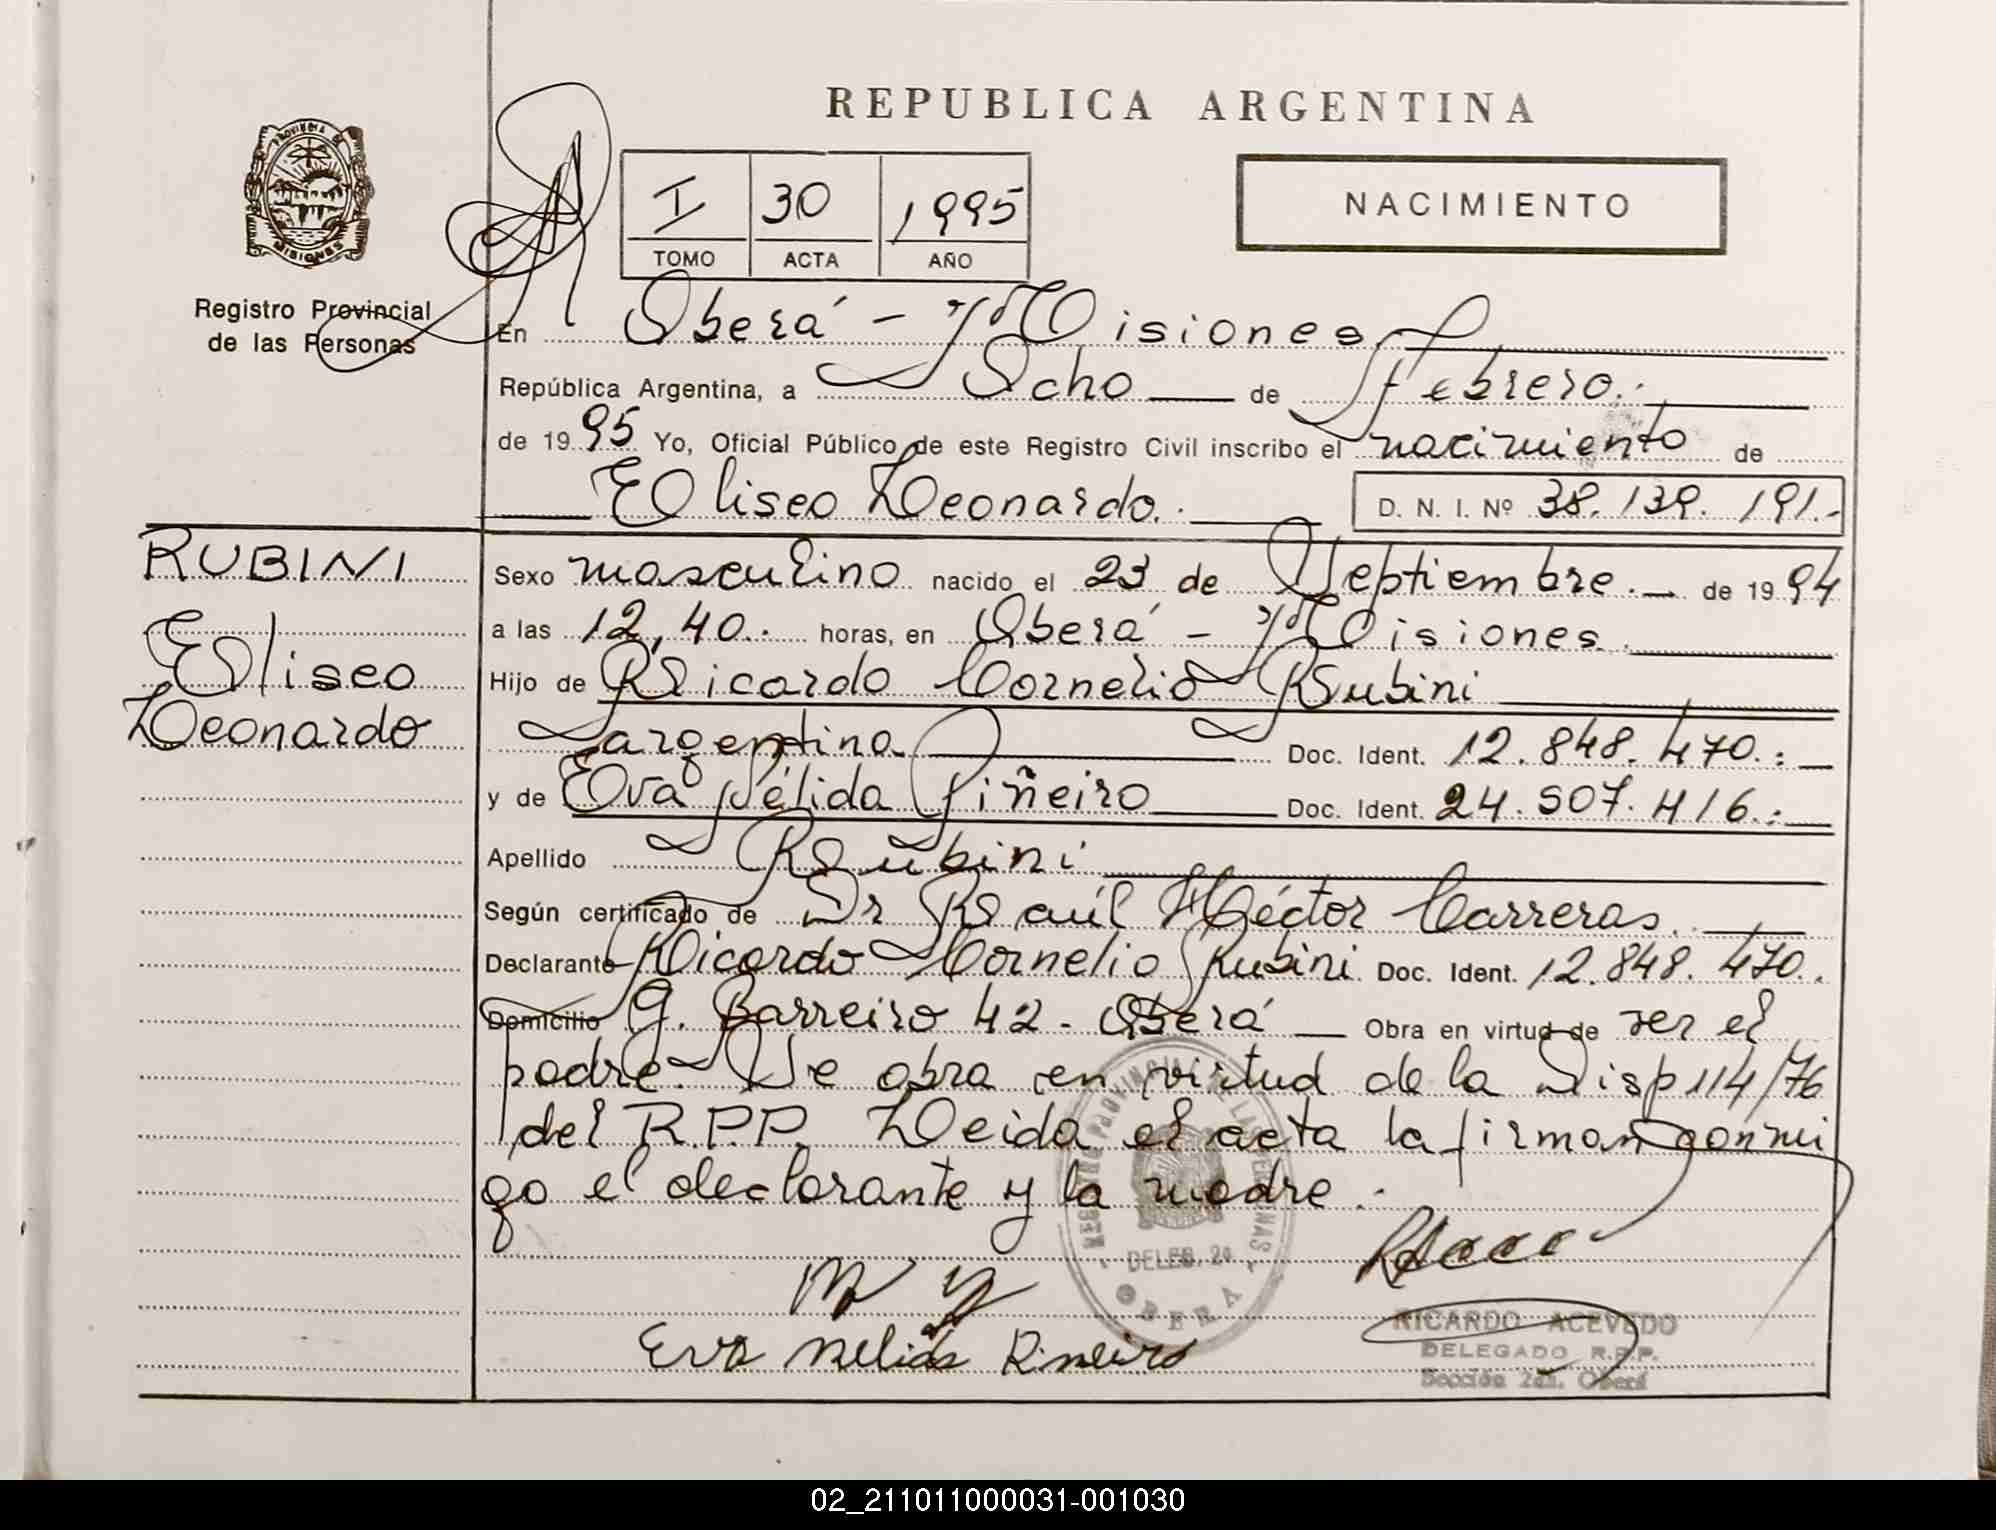 REPUBLICA ARGENTINA
PROVINCIA DE
MISIONES
Registro Provincial
de las Personas
I 30 1995
TOMO ACTA AÑO
NACIMIENTO
En Oberá - Misiones
República Argentina, a Ocho de Febrero.
de 1995 Yo, Oficial Público de este Registro Civil inscribo el nacimiento de
Eliseo Leonardo. D. N. I. Nº 38.139.191.-
RUBINI
Eliseo
Leonardo
Sexo masculino nacido el 23 de Septiembre. de 1994
a las 12,40. horas, en Oberá - Misiones.
Hijo de Ricardo Cornelio Rubini
argentino Doc. Ident. 12.848.470.:
y de Eva Nélida Piñeiro Doc. Ident. 24.507.416.:
Apellido Rubini
Según certificado de Dr Raúl Héctor Carreras.
Declarante Ricardo Cornelio Rubini Doc. Ident. 12.848.470.
Domicilio G. Barreiro 42 - Oberá Obra en virtud de ser el
padre. Se obra en virtud de la Disp 114/76
del R.P.P. Leída el acta la firman conmi
go el declarante y la madre.
REGISTRO PROVINCIAL DE LAS PERSONAS
DELEG. 2a
OBERA
Eva Nelida Piñeiro
RICARDO ACEVEDO
DELEGADO R.P.P.
Sección 2da. Oberá
02_211011000031-001030